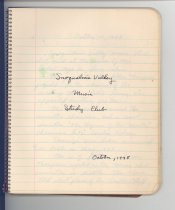 Snoqualmie Valley
Music
Study Club
October, 1948